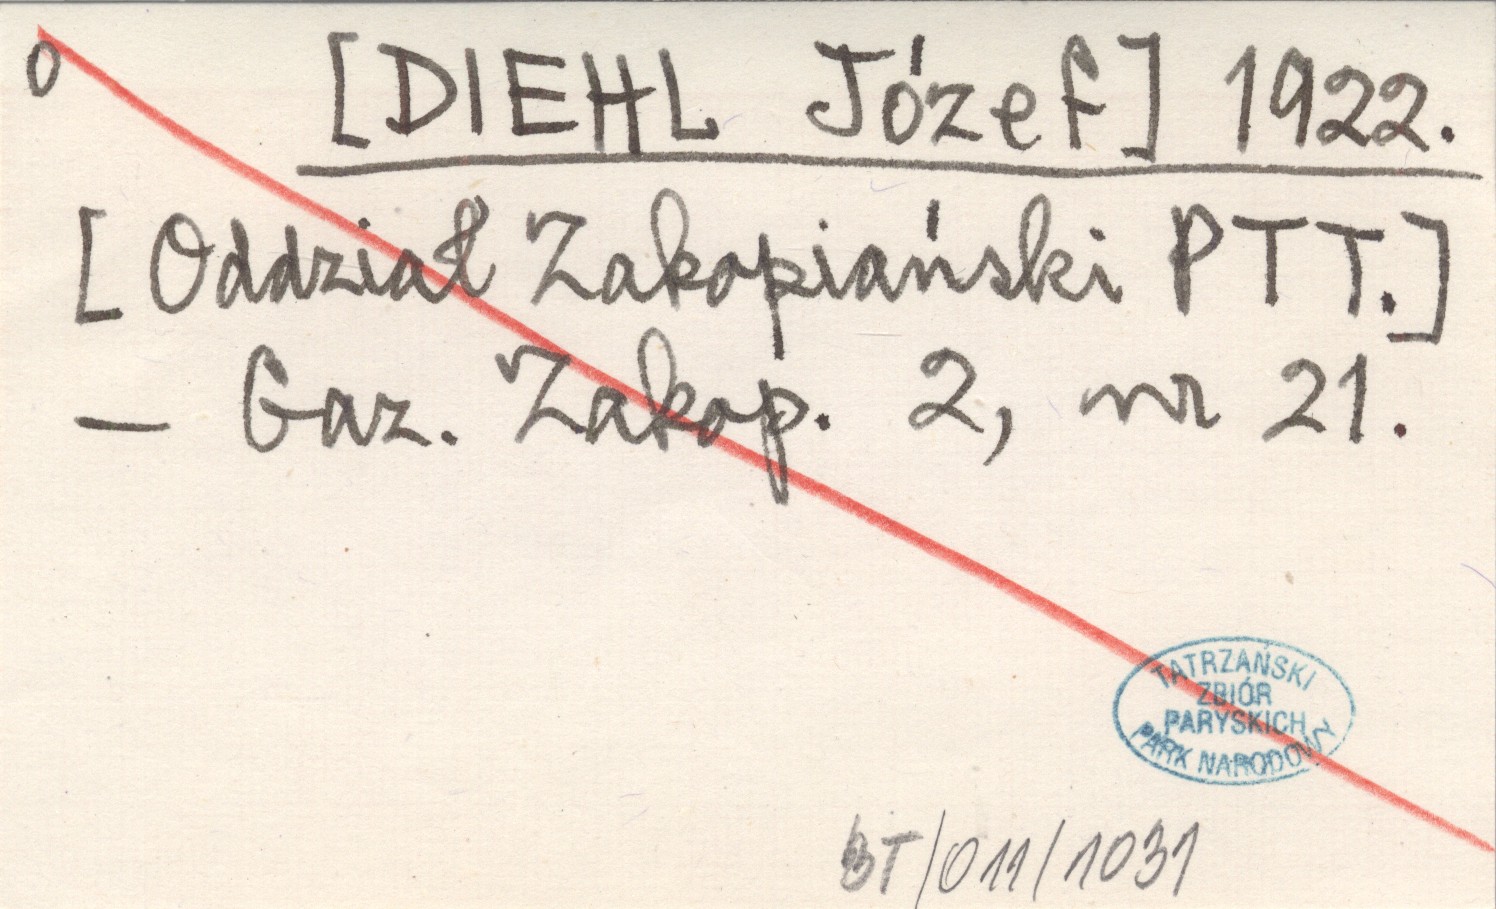 0
[DIEHL Józef] 1922.
[Oddział Zakopiański PTT.]
— Gaz. Zakop. 2, nr 21.
TATRZAŃSKI
ZBIÓR
PARYSKICH
PARK NARODOWY
BT/011/1031